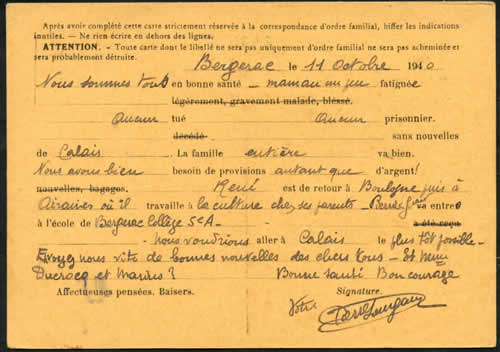 Après avoir complété cette carte strictement réservée à la correspondance d'ordre familial, biffer les indications
inutiles. — Ne rien écrire en dehors des lignes.
ATTENTION. - Toute carte dont le libellé ne sera pas uniquement d'ordre familial ne sera pas acheminée et
sera probablement détruite.
Bergerac le 11 Octobre 1940
Nous sommes tous en bonne santé — maman un peu fatiguée
légèrement, gravement malade, blessé.
Aucun tué Aucun prisonnier.
décédé sans nouvelles
de Calais. La famille entière va bien.
Nous avons bien besoin de provisions autant que d'argent!
nouvelles, bagages. René est de retour à Boulogne puis à
Airaines où il travaille à la culture chez ses parents — va entrer
à l'école de Bergerac Collège a été reçu
— nous voudrions aller à Calais le plus tôt possible —
Envoyez nous vite de bonnes nouvelles des chers tous — Et Mme
Ducrocq et Marius? Bonne santé Bon courage
Affectueuses pensées. Baisers. Signature.
Votre